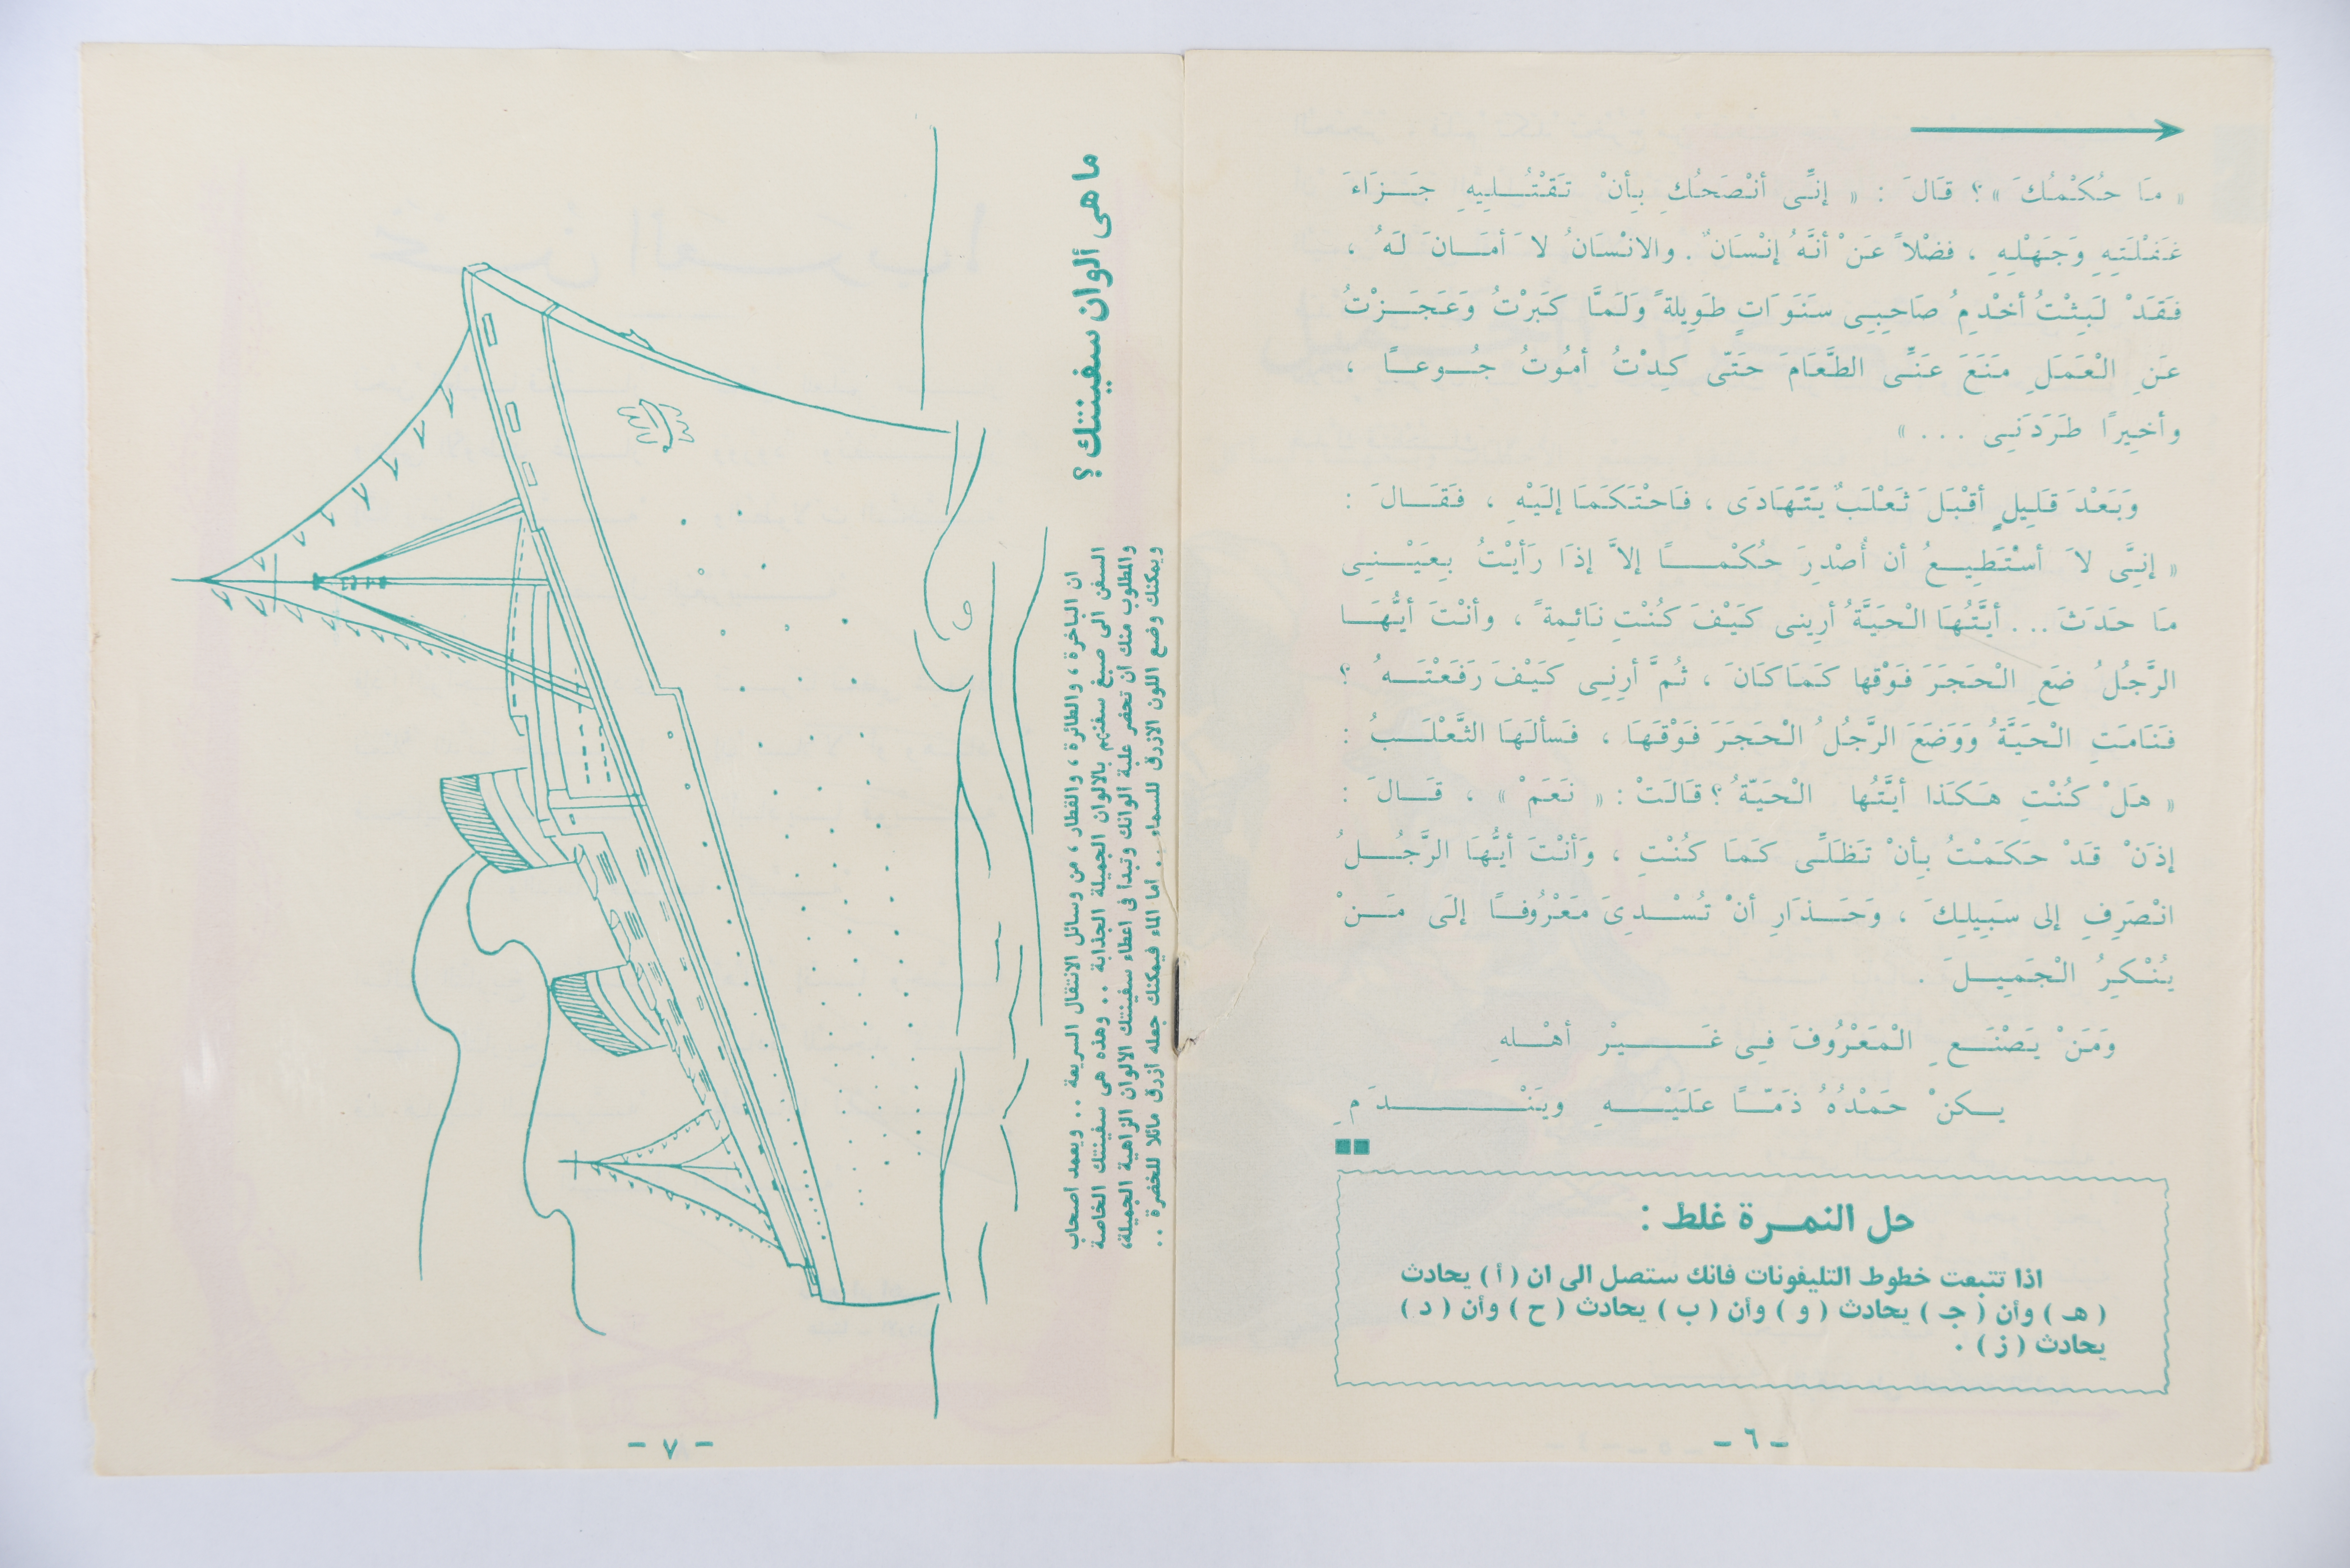 « مَا حُكْمُكَ » ؟ قَالَ : « إنِّى أنْصَحُكِ بِأنْ تَقْتُلِيهِ جَزَاءَ
غَفْلَتِهِ وَجَهْلِهِ ، فضْلاً عَنْ أنَّهُ إنْسَانٌ . والانْسَانُ لاَ أمَانَ لَهُ ،
فَقَدْ لَبِثْتُ أخْدِمُ صَاحِبِى سَنَوَاتٍ طَوِيلةً وَلَمَّا كَبَرْتُ وَعَجَزْتُ
عَنِ الْعَمَلِ مَنَعَ عَنِّى الطَّعَامَ حَتّى كِدْتُ أمُوتُ جُوعًا ،
وأخِيرًا طَرَدَنِى ... »
وَبَعْدَ قَلِيلٍ أقْبَلَ ثَعْلَبٌ يَتَهَادَى ، فَاحْتَكَمَا إلَيْهِ ، فَقَالَ :
« إنِّى لاَ أسْتَطِيعُ أن أُصْدِرَ حُكْمًا إلاَّ إذَا رَأيْتُ بِعَيْنِى
مَا حَدَثَ ... أيَّتُهَا الْحَيَّةُ أرِينى كَيْفَ كُنْتِ نَائِمةً ، وأنْتَ أيُّهَا
الرَّجُلُ ضَعِ الْحَجَرَ فَوْقَها كَمَا كَانَ ، ثُمَّ أرِنِى كَيْفَ رَفَعْتَهُ ؟
فَنَامَتِ الْحَيَّةُ وَوَضَعَ الرَّجُلُ الْحَجَرَ فَوْقَهَا ، فَسألَهَا الثَّعْلَبُ :
« هَلْ كُنْتِ هَكَذا أيَّتُها الْحَيّةُ ؟ قَالَتْ : « نَعَمْ » ، قَالَ :
إذَنْ قَدْ حَكَمْتُ بِأنْ تَظَلِّى كَمَا كُنْتِ ، وَأنْتَ أيُّهَا الرَّجُلُ
انْصَرِفِ إلى سَبِيلِكَ ، وَحَذَارِ أنْ تُسْدِىَ مَعْرُوفًا إلَى مَنْ
يُنْكِرُ الْجَمِيلَ .
وَمَنْ يَصْنَعِ الْمَعْرُوفَ فِى غَيْرِ أهْلهِ
يكنْ حَمْدُهُ ذَمّاً عَلَيْهِ ويَنْدَمِ
حل النمرة غلط :
اذا تتبعت خطوط التليفونات فانك ستصل الى ان ( أ ) يحادث
( هـ ) وأن ( جـ ) يحادث ( و ) وأن ( ب ) يحادث ( ح ) وأن ( د )
يحادث ( ز ) .
- ٦ -
ما هى ألوان سفينتك ؟
ان الباخرة ، والطائرة ، والقطار ، من وسائل الانتقال السريعة .. ويعمد اصحاب
السفن الى صبغ سفنهم بالالوان الجميلة الجذابة .. وهذه هى سفينتك الخاصة
والمطلوب منك ان تحضر علبة الوانك وتبدأ فى اعطاء سفينتك الالوان الزاهية الجميلة،
ويمكنك وضع اللون الازرق للسماء . اما الماء فيمكنك جعله ازرق مائلا للخضرة ..
- ٧ -